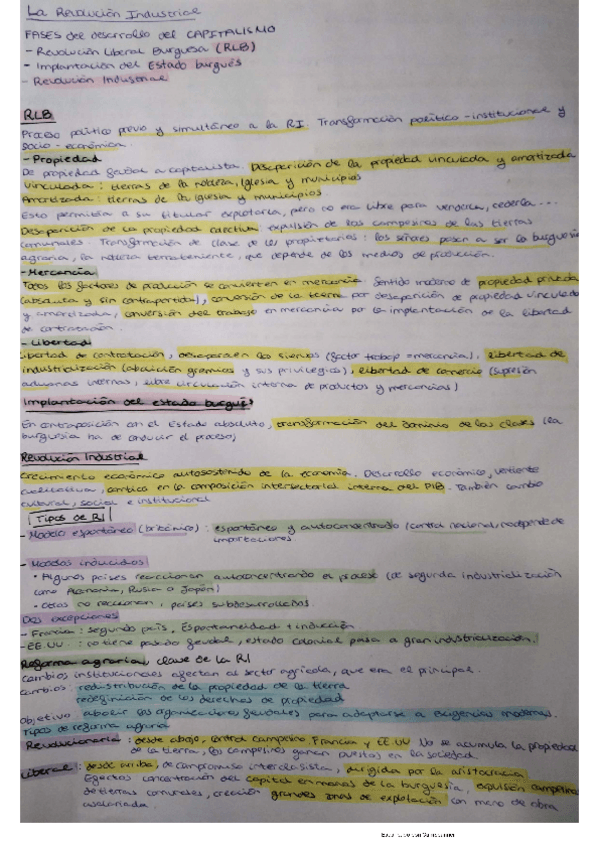 La Revolución Industrial
FASES del desarrollo del CAPITALISMO
- Revolución Liberal Burguesa (RLB)
- Implantación del Estado burgués
- Revolución Industrial
RLB
Proceso político previo y simultáneo a la RI. Transformación político-institucional y
socio-económica.
- Propiedad
De propiedad feudal a capitalista. Desaparición de la propiedad vinculada y amortizada
Vinculada: tierras de la nobleza, Iglesia y municipios
Amortizada: tierras de la Iglesia y municipios
Esto permitía a su titular explotarla, pero no era libre para venderla, cederla...
Desaparición de la propiedad colectiva: expulsión de los campesinos de las tierras
comunales. Transformación de clase de los propietarios: los señores pasan a ser la burguesía
agraria, la nobleza terrateniente, que depende de los medios de producción.
- Mercancía
Todos los factores de producción se convierten en mercancía. Sentido moderno de propiedad privada
(absoluta y sin contrapartida), conversión de la tierra por desaparición de propiedad vinculada
y amortizada, conversión del trabajo en mercancía por la implantación de la libertad
de contratación.
- Libertad
Libertad de contratación, desaparecen los siervos (factor trabajo = mercancía), libertad de
industrialización (abolición gremios y sus privilegios), libertad de comercio (supresión
aduanas internas, libre circulación interna de productos y mercancías)
Implantación del estado burgués
En contraposición con el Estado absoluto, transformación del dominio de las clases (la
burguesía ha de conducir el proceso)
Revolución Industrial
Crecimiento económico autosostenido de la economía. Desarrollo económico, vertiente
cualitativa, cambios en la composición intersectorial interna del PIB. También cambio
cultural, social e institucional
Tipos de RI
- Modelo espontáneo (británico): espontáneo y autoconcentrado (control nacional, no depende de
importaciones.
- Modelos inducidos
• Algunos países reaccionan autoconcentrando el proceso (de segunda industrialización
como Alemania, Rusia o Japón)
• Otros no reaccionan, países subdesarrollados.
Dos excepciones
- Francia: segundo país. Espontaneidad + inducción
- EE.UU.: no tiene pasado feudal, estado colonial pasa a gran industrialización.
Reforma agraria, clave de la RI
Cambios institucionales afectan al sector agrícola, que era el principal.
Cambios: redistribución de la propiedad de la tierra
redefinición de los derechos de propiedad
Objetivo: abolir las organizaciones feudales para adaptarse a exigencias modernas.
Tipos de reforma agraria
Revolucionaria: desde abajo, control campesino. Francia y EE.UU. No se acumula la propiedad
de la tierra, los campesinos ganan puestos en la sociedad
Liberal: desde arriba, de compromiso interclasista, dirigida por la aristocracia
Efectos concentración del capital en manos de la burguesía, expulsión campesinos
de tierras comunales, creación grandes zonas de explotación con mano de obra
asalariada.